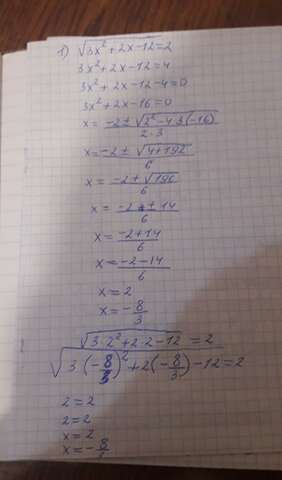 1) √(3x²+2x-12) = 2
3x²+2x-12=4
3x²+2x-12-4=0
3x²+2x-16=0
x = (-2±√(2²-4·3(-16)))/(2·3)
x = (-2±√(4+192))/6
x = (-2±√196)/6
x = (-2±14)/6
x = (-2+14)/6
x = (-2-14)/6
x = 2
x = -8/3
√(3·2²+2·2-12) = 2
√(3(-8/3)²+2(-8/3)-12) = 2
2=2
2=2
x=2
x=-8/3